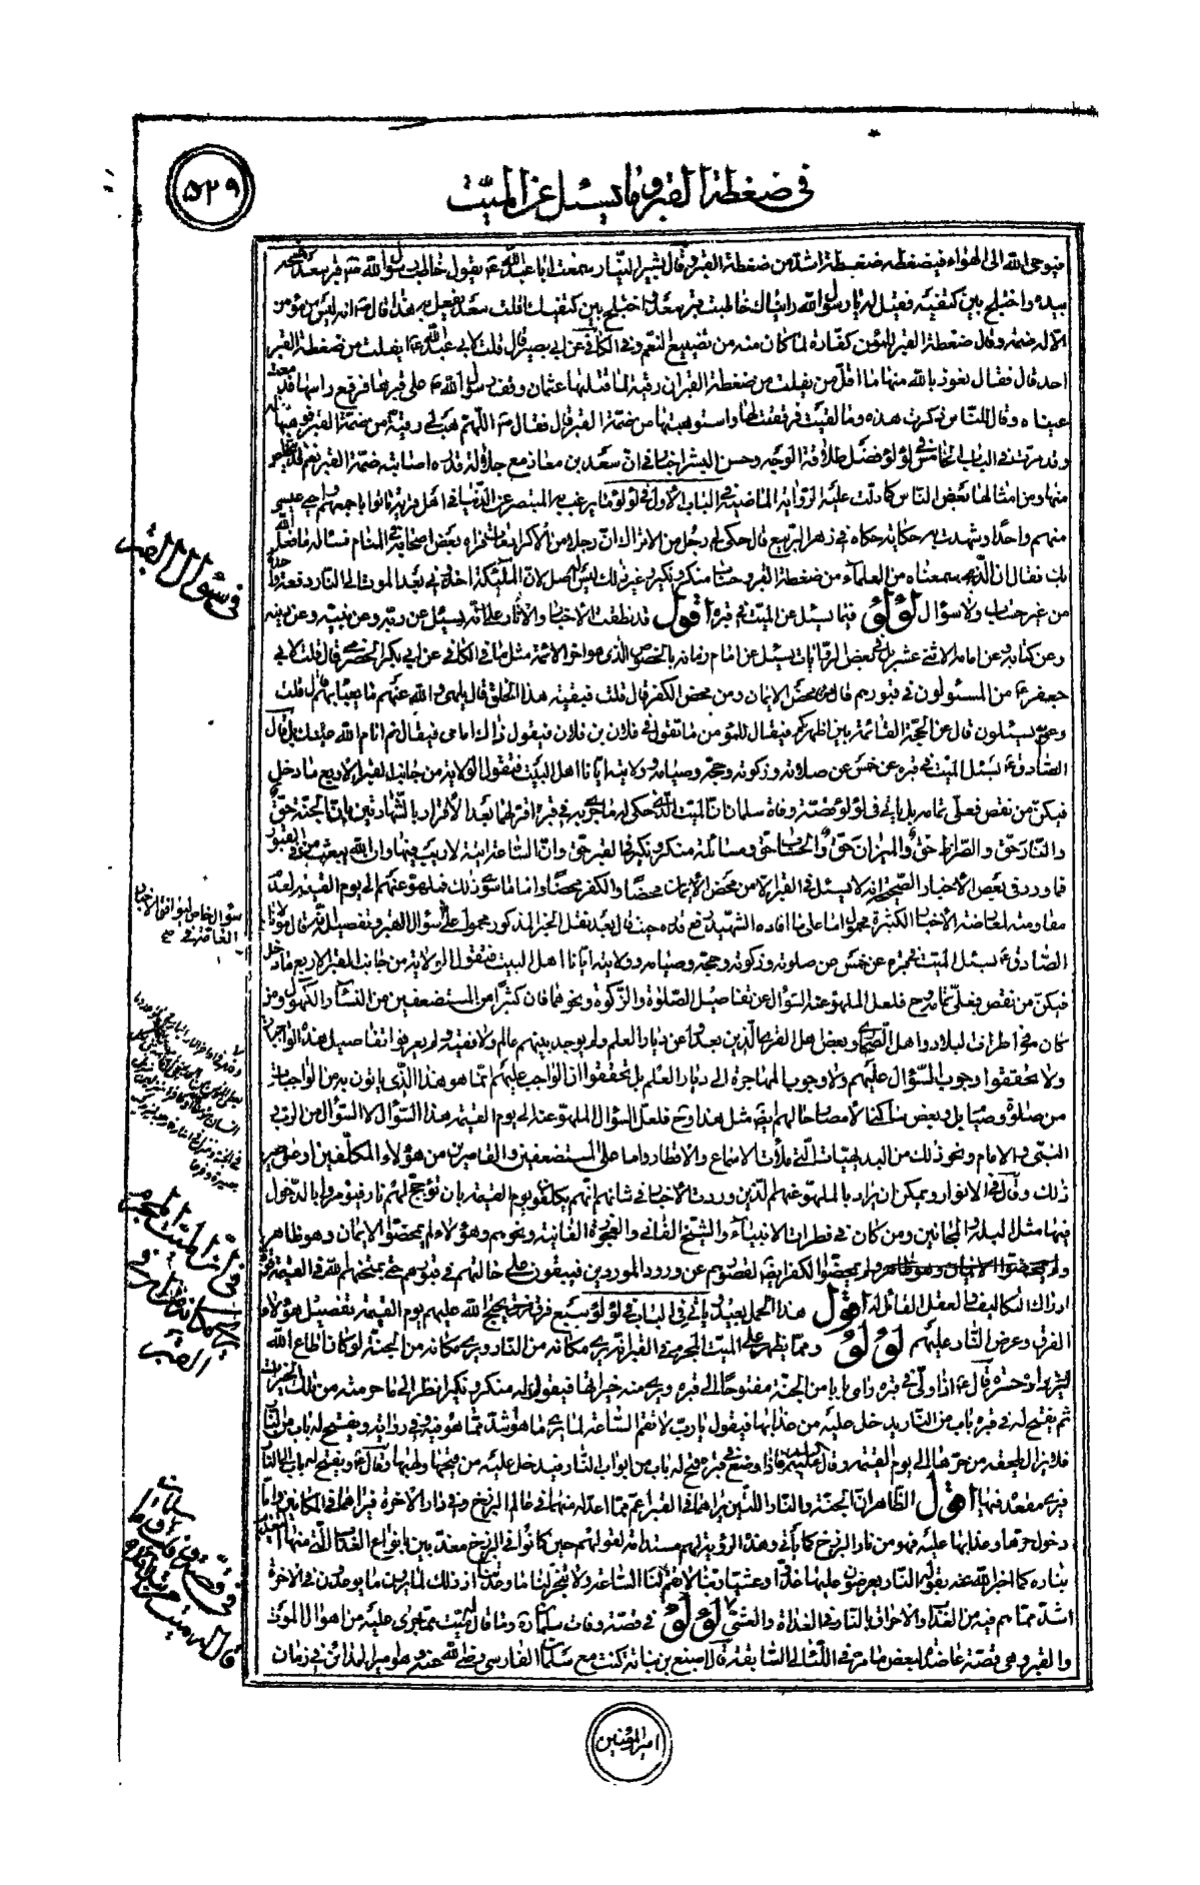 في ضغطة القبر وما يسئل عن الميّت
۵۲۹
فيوحي الله الى الهواء فيضغطه ضغطة اشد من ضغطة القبر وقال بشير النبّار سمعت ابا عبد الله ع يقول خاطب رسول الله ص قبر سعد فمسحه
بيده واختلج بين كتفيه فقيل له يا رسول الله رايناك خاطبت قبر سعد واختلج بين كتفيك وقلت سعد يفعل به هذا قال ص انه ليس من مؤمن
الّا وله ضمّة وقال ضغطة القبر للمؤمن كفّارة لما كان منه من تضييع النعم وفي الكافي عن ابي بصير قال قلت لابي عبد الله ع ايفلت من ضغطة القبر
احد قال فقال نعوذ بالله منها ما اقلّ من يفلت من ضغطة القبر ان رقيّة لما قتلها عثمان وقف رسول الله ص على قبرها فرفع راسه الى السماء فدمعت
عيناه وقال للناس ذكرت هذه وما لقيت فرققت لها واستوهبتها من ضمّة القبر قال فقال ص اللّهم هب لي رقيّة من ضمّة القبر فوهبها الله له
وقد مرّت في الباب الخامس في لؤلؤ فضل طلاقة الوجه وحسن البشر اخبار في انّ سعد بن معاذ مع جلالة قدره اصابته ضمّة القبر نعم قد
منها ومن امثالها بعض الناس كما دلّت عليه الرواية الماضية في الباب الاول في لؤلؤ ما يرغب به المتبصر عن الدنيا في اهل قرية ماتوا باجمعهم واحيى عيسى
منهم واحدا وشهدت به حكاية حكاه في زهر الربيع قال حكى لي رجل من الاتراك انّ رجلا من الاكراد مات فراه بعض اصحابه في المنام فسئاله ما فعل الله
بك فقال انّ الذي سمعناه من العلماء من ضغطة القبر وحساب منكر ونكير وغير ذلك ليس له اصل لان الملئكة اخذوني بعد الموت الى النار دفعة واحدة
من غير حساب ولا سؤال لؤلؤ فيما يسئل عن الميّت في قبره اقول قد نطقت الاخبار والاثار على انّه يسئل عن ربّه وعن نبيّه وعن دينه
وعن كتابه وعن امامه الاثنى عشر بل في بعض الروايات يسئل عن امام زمانه بالخصوص الذي هو اخر الائمة مثل ما في الكافي عن ابي بكر الحضرمي قال قلت لابي
جعفر ع من المسئولون في قبورهم قال من محض الايمان ومن محض الكفر قال قلت فبقيّة هذا الخلق قال يلهى والله عنهم ما يعبأ بهم قال قلت
وعمّ يسئلون قال عن الحجّة القائمة بين اظهركم فيقال للمؤمن ما تقول في فلان بن فلان فيقول ذاك امامي فيقال نم انام الله عينك بل قال
الصّادق ع يسئل الميّت في قبره عن خمس عن صلاته وزكوته وحجّه وصيامه وولايته ايانا اهل البيت فتقول الولاية من جانب القبر للاربع ما دخل
فيكنّ من نقص فعليّ تمامه بل ياتي في لؤلؤ قصّة وفاة سلمان انّ الميّت الذي حكى له ما جرى به في قبره اقر لهما بعد الاقرار بالشّهادتين بانّ الجنّة حقّ
والنّار حقّ والصّراط حقّ والميزان حقّ والحساب حقّ ومسائلة منكر ونكير في القبر حق وانّ السّاعة اتية لا ريب فيها وان الله يبعث من في القبور
فما ورد في بعض الاخبار الصّحيح انه لا يسئل في القبر الّا من محض الايمان محضا والكفر محضا واما ما سوى ذلك فيلهو عنهم الى يوم القيمة لعدم
مقاومته لمعارضة الاخبار الكثيرة محمول اما على ما افاده الشّهيد قدّه حيث قال بعد نقل الخبر المذكور محمول على سؤال القبر وتفصيل لانه قال مولانا
الصّادق ع يسئل الميّت في قبره عن خمس عن صلوته وزكوته وحجّه وصيامه وولايته ايانا اهل البيت فتقول الولاية من جانب القبر للاربع ما دخل
فيكنّ من نقص فعليّ تمامه فلعل الملهوّ عنه السّؤال عن تفاصيل الصّلوة والزّكوة ونحوهما فان كثيرا من المستضعفين من النّساء والكهول ومن
كان في اطراف البلاد واهل الصّحارى وبعض اهل القرى الّذين بعدوا عن ديار العلم ولم يوجد بينهم عالم ولا فقيه ولم يعرفوا تفاصيل هذه الواجبات
ولا تحققوا وجوب السّؤال عليهم ولا وجوب المهاجرة الى ديار العلم بل تحققوا ان الواجب عليهم انّما هو هذا الّذي ياتون به من الواجبات
من صلوة وصيام بل وبعض سكنة الامصار حالهم ايضا مثل هذا فلعل السّؤال الملهوّ عنه الى يوم القيمة هذا السّؤال لا السّؤال عن الرب
النبيّ والامام ونحو ذلك من البديهيات الّتي ملأت الاسماع والاقطار واما على المستضعفين والقاصرين من هؤلاء المكلّفين او على غير
ذلك وقال في الانوار ويمكن ان يراد بالملهوّ عنهم الّذين وردت الاخبار في شانهم انّهم يكلّفون يوم القيمة بان تؤجّج لهم نار فيؤمروا بالدّخول
فيها مثل البله والمجانين ومن كان في فطرات الانبياء والشّيخ الفاني والعجوزة الفانية ونحوهم وهؤلاء لم يمحضوا الايمان وهو ظاهر
ولم يمحضوا الكفر ايضا لقصورهم عن ورود الموردين فيبقون على حالتهم في قبورهم حتى يمتحنهم الله في القيمة
ادراك التكاليف العقل القائل له اقول هذا المحمل بعيد ياتي في الباب في لؤلؤ سبع فرق يحتج الله عليهم يوم القيمة تفصيل هؤلاء
الفرق وعرض النّار عليهم لؤلؤ وممّا يظهر على الميّت المجرم في القبر انه يرى مكانه من النار ويرى مكانه من الجنة لو كان اطاع الله
ليزداد حسرة قال ع اذا ولّى في قبره راى بابا من الجنّة مفتوحا الى قبره ويرى منه خيراتها فيقول له منكر ونكير انظر الى ما حرمته من تلك الخيرات
ثم يفتح له في قبره باب من النّار يدخل عليه من عذابها فيقول يا ربّ لا تقم السّاعة لما يرى ما هو اشدّ ممّا هو فيه وفي رواية ويفتح له باب من النّار
فلا يزال يلحقه من حرّها الى يوم القيمة وقال ع فاذا وضع في قبره فتح له باب من ابواب النّار فيدخل عليه من فيحها ولهبها وقال ع ويفتح له باب الى النّار
فيرى مقعده فيها اقول الظّاهر انّ الجنّة والنّار اللتين يراهما في القبر اعم ممّا اعد له منهما في عالم البرزخ وفي دار الاخرة فيراهما في المكانين واما
دخول حرّها وعذابها عليه فهو من نار البرزخ كما ياتي وهذه الرؤية لهم مستدامة لقولهم حين كانوا في البرزخ معذّبين بانواع العذاب الّتي منها
بناره كما اخبر الله عنه بقوله النّار يعرضون عليها غدوّا وعشيا ربّنا لا تقم لنا السّاعة ولا تنجز لنا ما وعدتنا اذ ذلك لما يرون ما يوعدون في الاخرة
اشدّ ممّا هم فيه من العذاب والاحراق بالنار في الغداة والعشيّ لؤلؤ في قصّة وفات سلمان ره وما قال له ميّت ممّا جرى عليه من اهوال الموت
والقبر وهي قصّة عاضدة لبعض ما مرّ في اللئالي السّابقة قال الاصبغ بن نباتة كنت مع سلمان الفارسي رضي الله عنه وهو امير المدائن في زمان
امير المؤمنين
في سؤال القبر
في انّ الميت المجرم
يرى مكانه من النار في
القبر